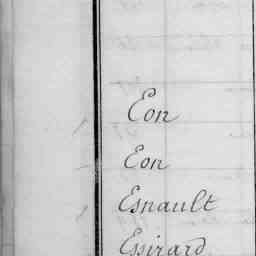 Eon
Eon
Esnault
Essirard